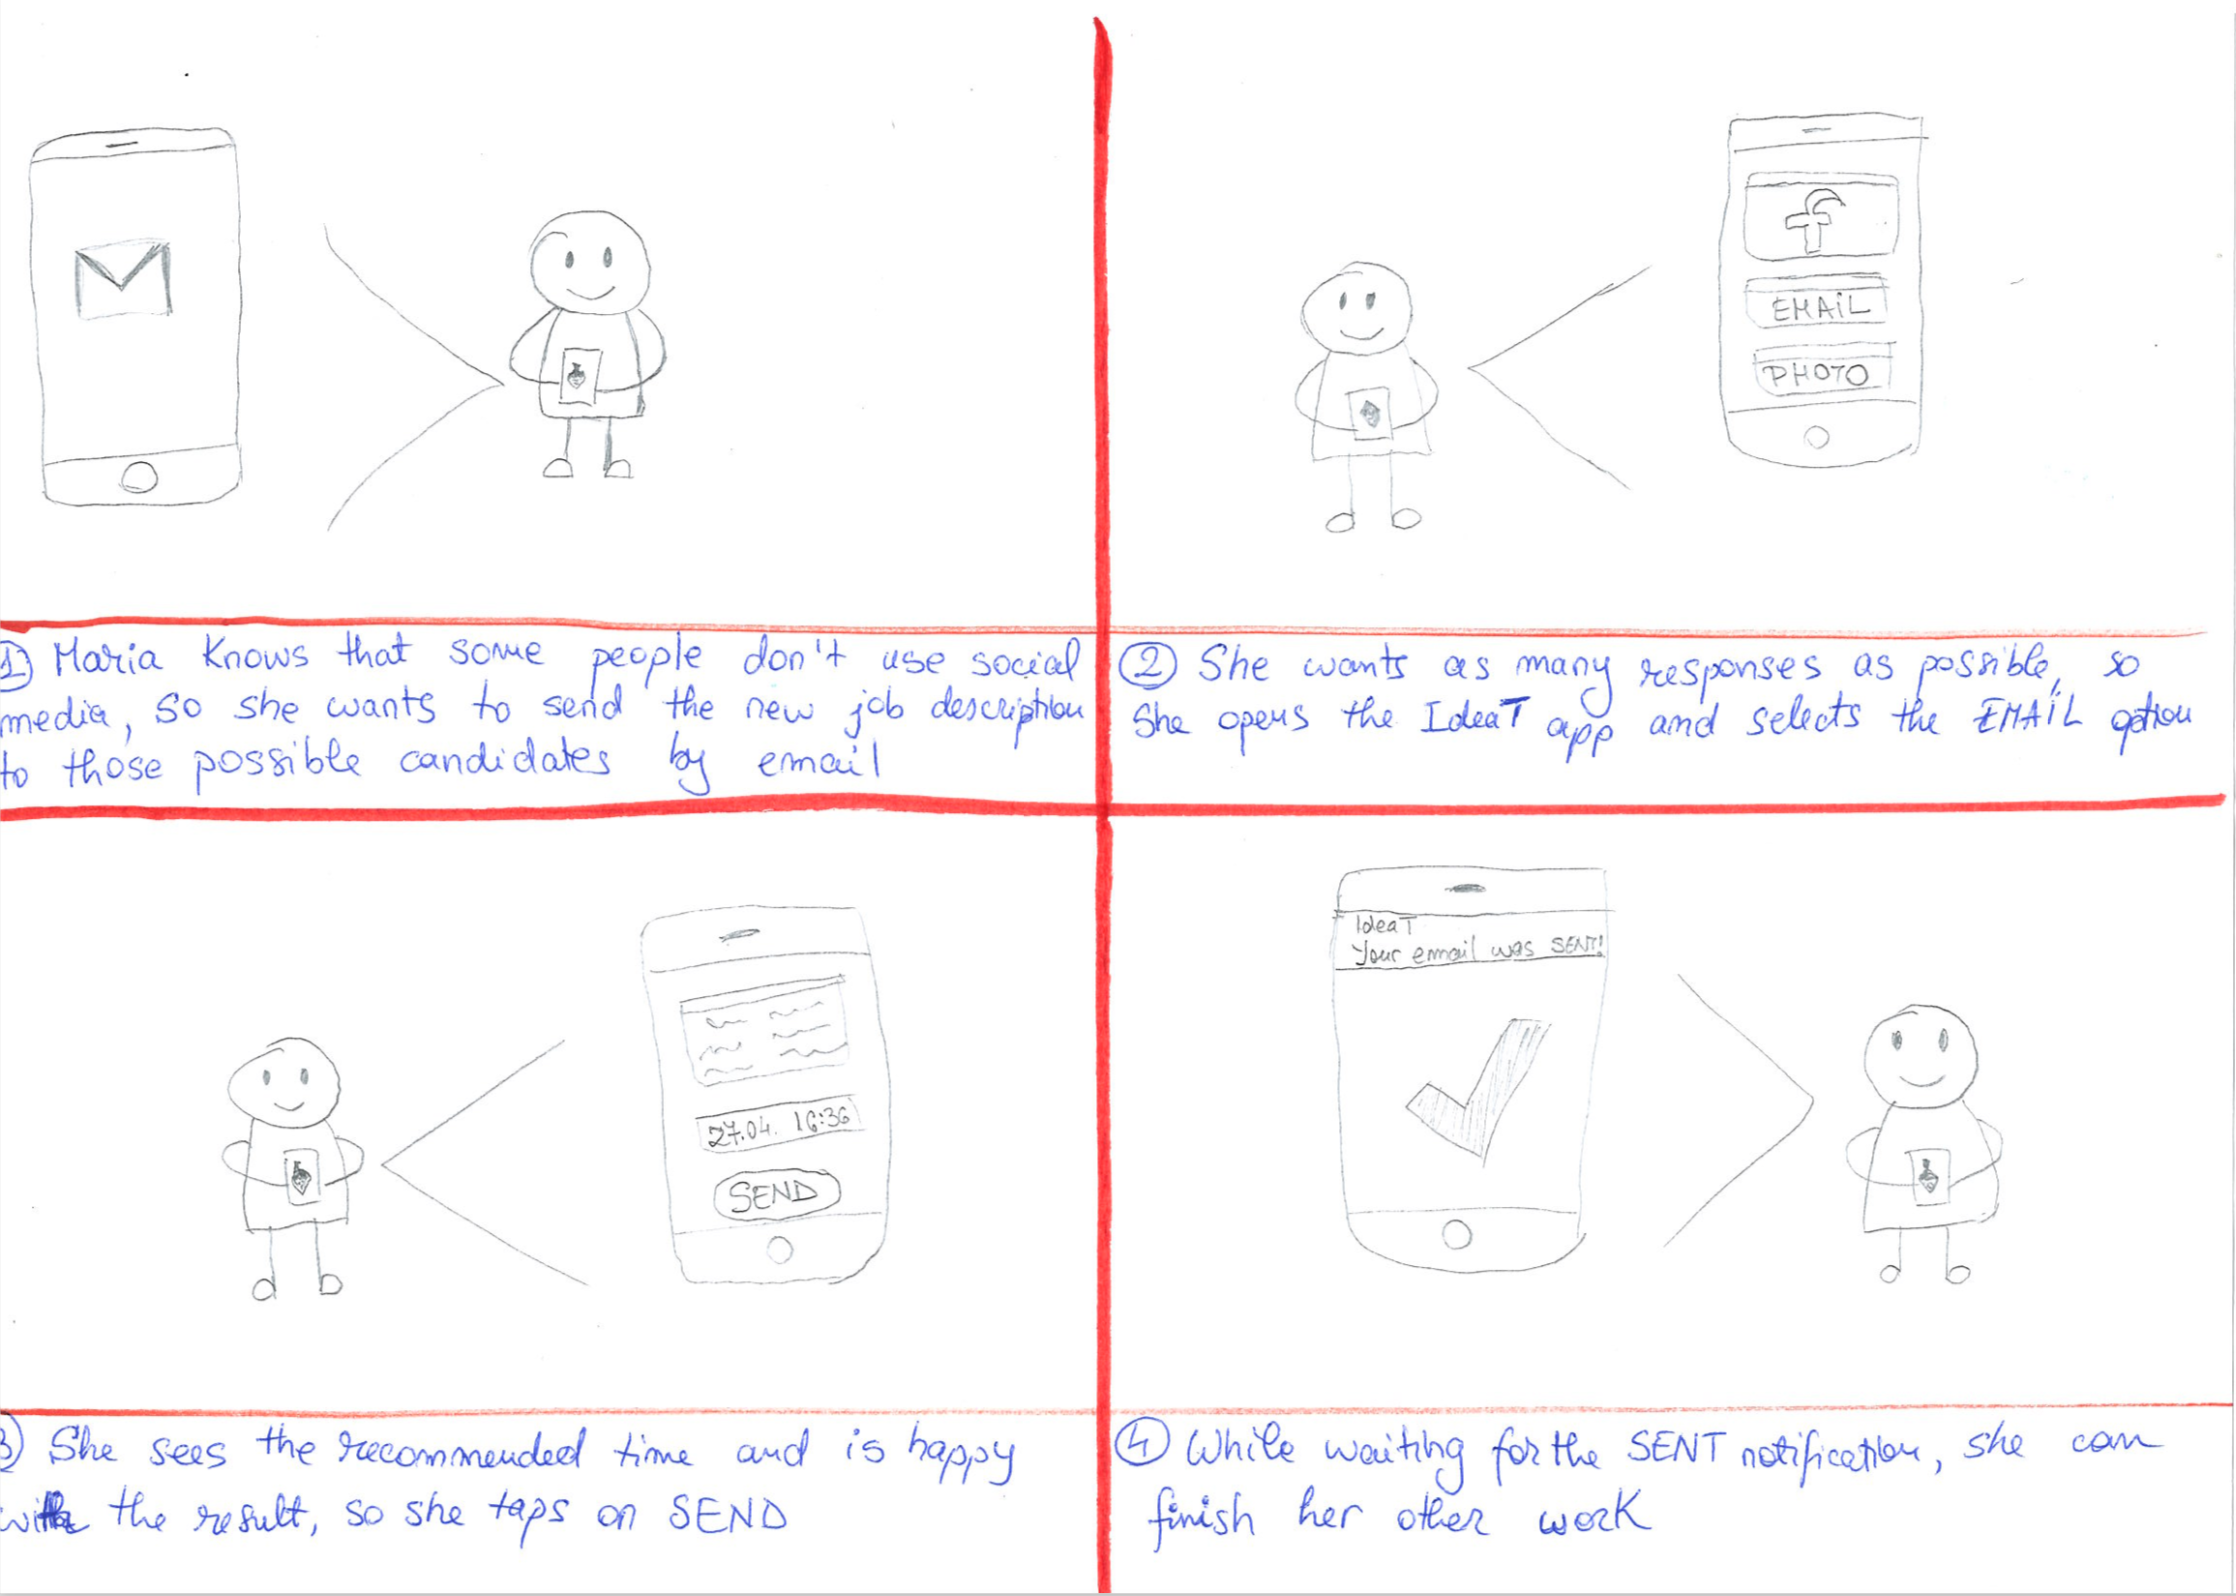 EMAIL
PHOTO
① Maria knows that some people don't use social
media, so she wants to send the new job description
to those possible candidates by email
② She wants as many responses as possible, so
she opens the IdeaT app and selects the EMAIL option
27.04. 16:36
SEND
IdeaT
Your email was SENT!
3) She sees the recommended time and is happy
with the result, so she taps on SEND
④ While waiting for the SENT notification, she can
finish her other work